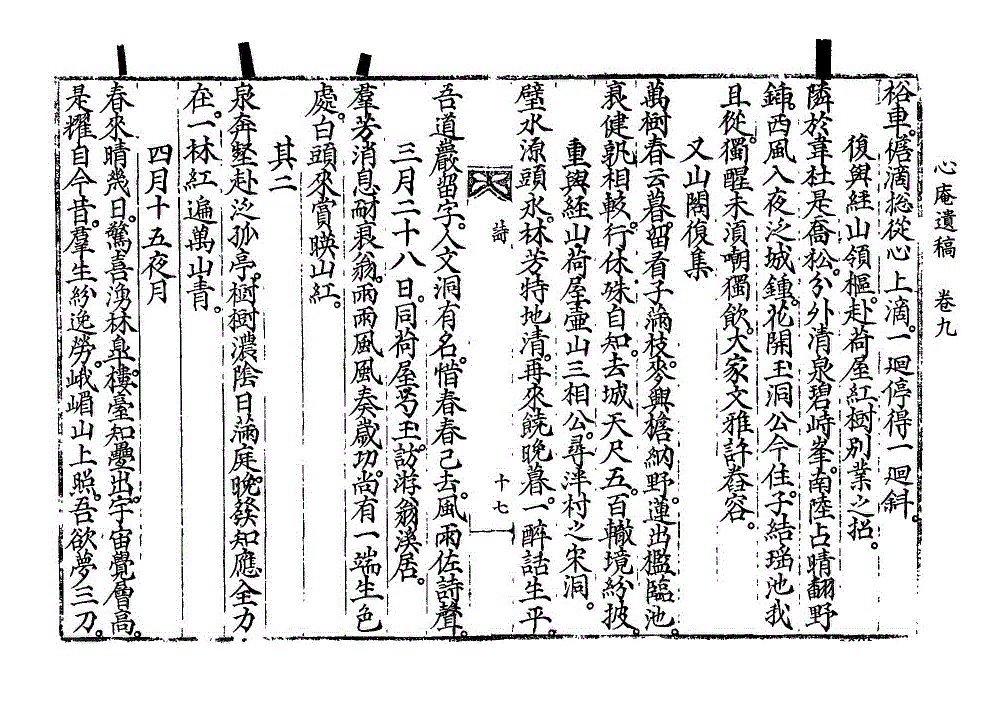 心庵遺稿 卷九
裕車。檐滴摠從心上滴。一迴停得一迴斜。
復與經山領樞。赴荷屋紅樹別業之招。
隣於韋杜是喬松。分外清泉碧峙峯。南陸占晴翻野
鍾。西風入夜泛城鍾。花開玉洞公今住。子結瑤池我
且從。獨醒未湏嘲獨飮。大家文雅許舂容。
又山閣復集
萬樹春云暮。留看子滿枝。麥輿擔納野。蓮出檻臨池。
衰健孰相較。行休殊自知。去城天尺五。百轍境紛披。
重與經山荷屋壷山三相公。尋泮村之宋洞。
璧水源頭水。林芳特地清。再來饒晩暮。一醉話生平。
詩 十七
吾道嚴留字。人文洞有名。惜春春已去。風雨佐詩聲。
三月二十八日。同荷屋芍玉。訪游翁溪居。
羣芳消息耐衰翁。雨雨風風奏歲功。尚有一端生色
處。白頭來賞暎山紅。
其二
泉奔壑赴泛孤亭。樹樹濃陰日滿庭。晩發知應全力
在。一林紅遍萬山青。
四月十五夜月
春來晴幾日。驚喜湧林臯。樓臺知疊出。宇宙覺層高。
是耀自今昔。羣生紛逸勞。峨嵋山上照。吾欲夢三刀。